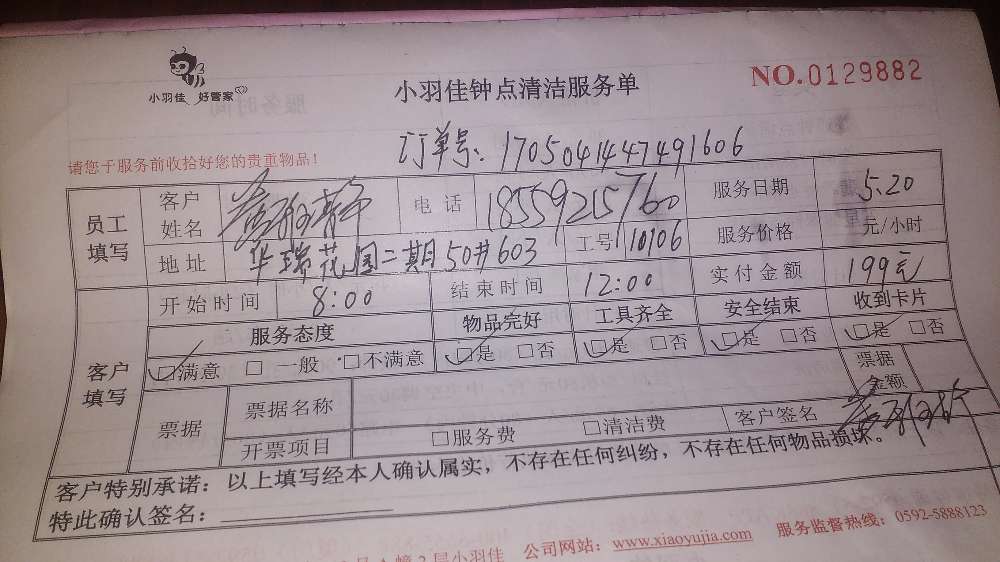 小羽佳 好管家
小羽佳钟点清洁服务单
NO.0129882
请您于服务前收拾好您的贵重物品！
订单号：1705041447491606
员工填写 客户姓名 电话 18559215760 服务日期 5.20
地址 华瑞花园二期50#603 工号 10106 服务价格 元/小时
开始时间 8:00 结束时间 12:00 实付金额 199元
客户填写 服务态度 物品完好 工具齐全 安全结束 收到卡片
☑满意 □一般 □不满意 ☑是 □否 ☑是 □否 ☑是 □否 ☑是 □否
票据 票据名称 票据金额
开票项目 □服务费 □清洁费 客户签名
客户特别承诺：以上填写经本人确认属实，不存在任何纠纷，不存在任何物品损坏。
特此确认签名：
2层小羽佳 公司网站：www.xiaoyujia.com 服务监督热线：0592-5888123